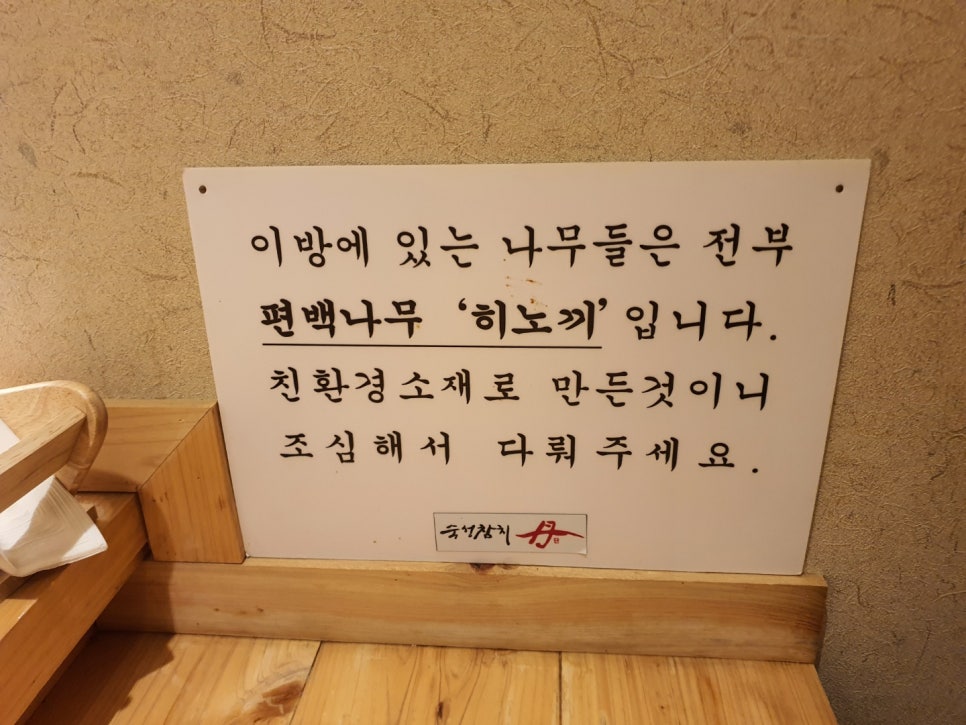 이방에 있는 나무들은 전부
편백나무 '히노끼' 입니다.
친환경소재로 만든것이니
조심해서 다뤄주세요.
숙성참치 丹